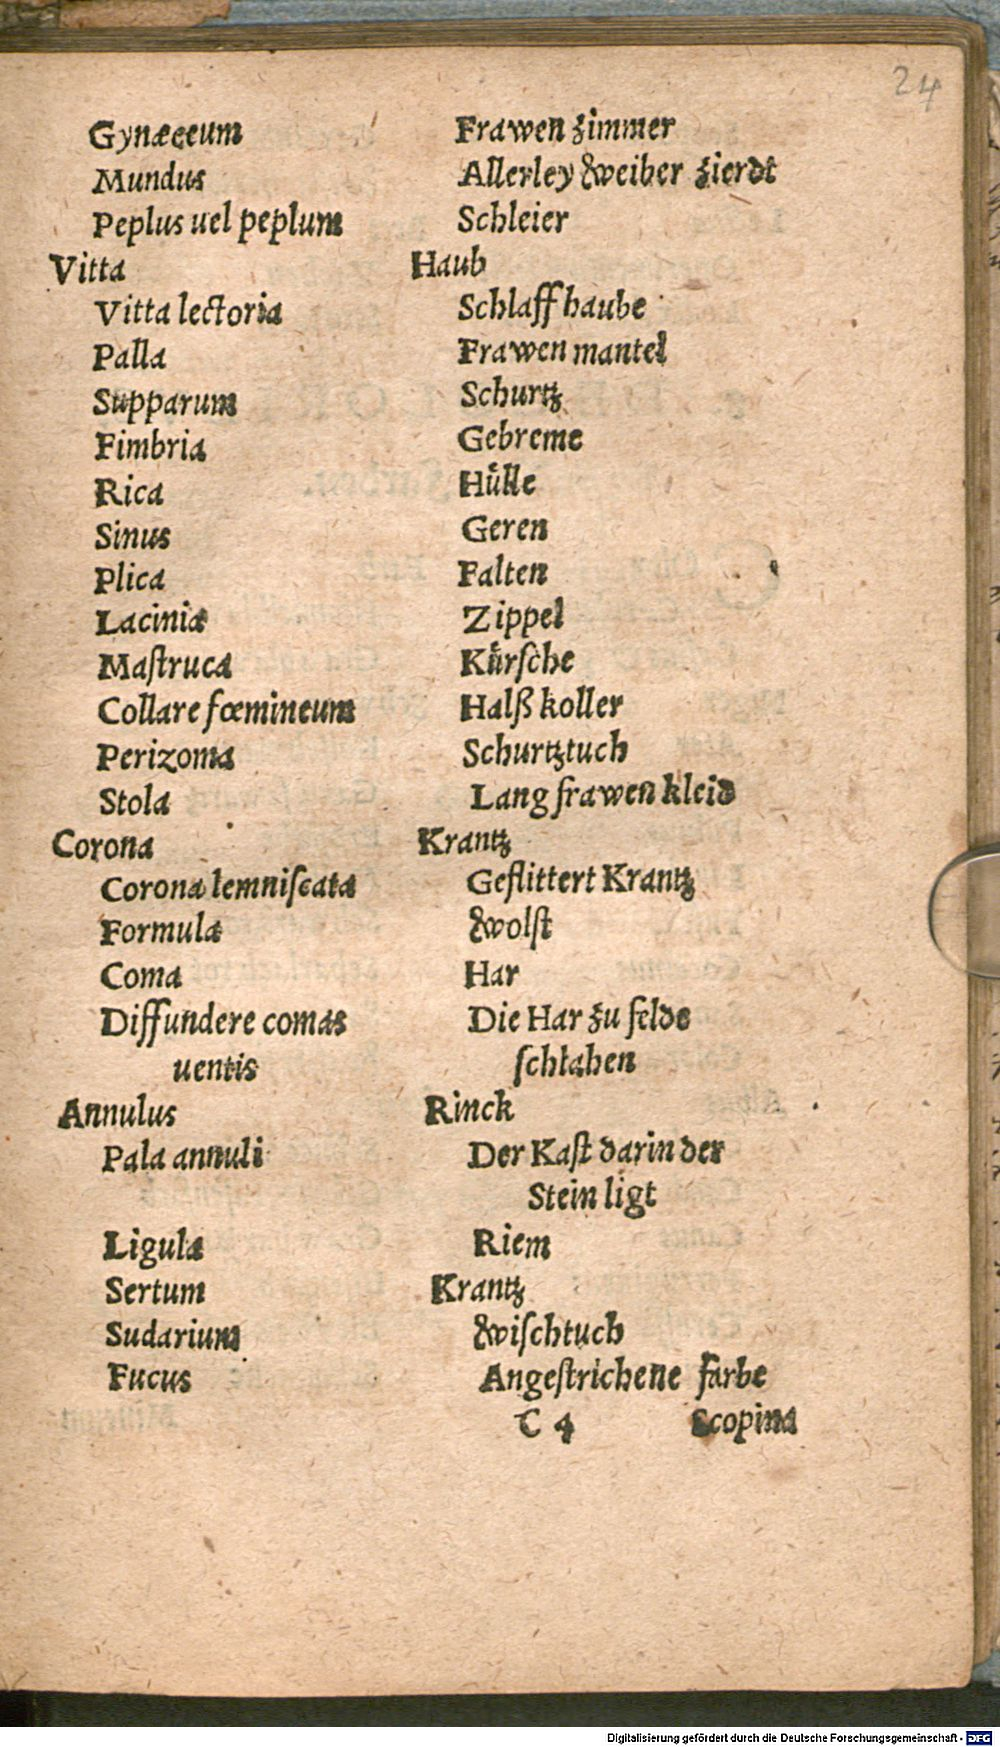 24
Gynæceum Frawen zimmer
Mundus Allerley Weiber zierdt
Peplus uel peplum Schleier
Vitta Haub
Vitta lectoria Schlaffhaube
Palla Frawen mantel
Supparum Schurtz
Fimbria Gebreme
Rica Hůlle
Sinus Geren
Plica Falten
Laciniæ Zippel
Maſtruca Kůrſche
Collare fœmineum Halß koller
Perizoma Schurtztuch
Stola Lang frawen kleid
Corona Krantz
Corona lemniſcata Geflittert Krantz
Formula Wolſt
Coma Har
Diffundere comas Die Har zu felde
uentis ſchlahen
Annulus Rinck
Pala annuli Der Kaſt darin der
Stein ligt
Ligula Riem
Sertum Krantz
Sudarium Wiſchtuch
Fucus Angeſtrichene farbe
C 4 Scopina
Digitalisierung gefördert durch die Deutsche Forschungsgemeinschaft - DFG